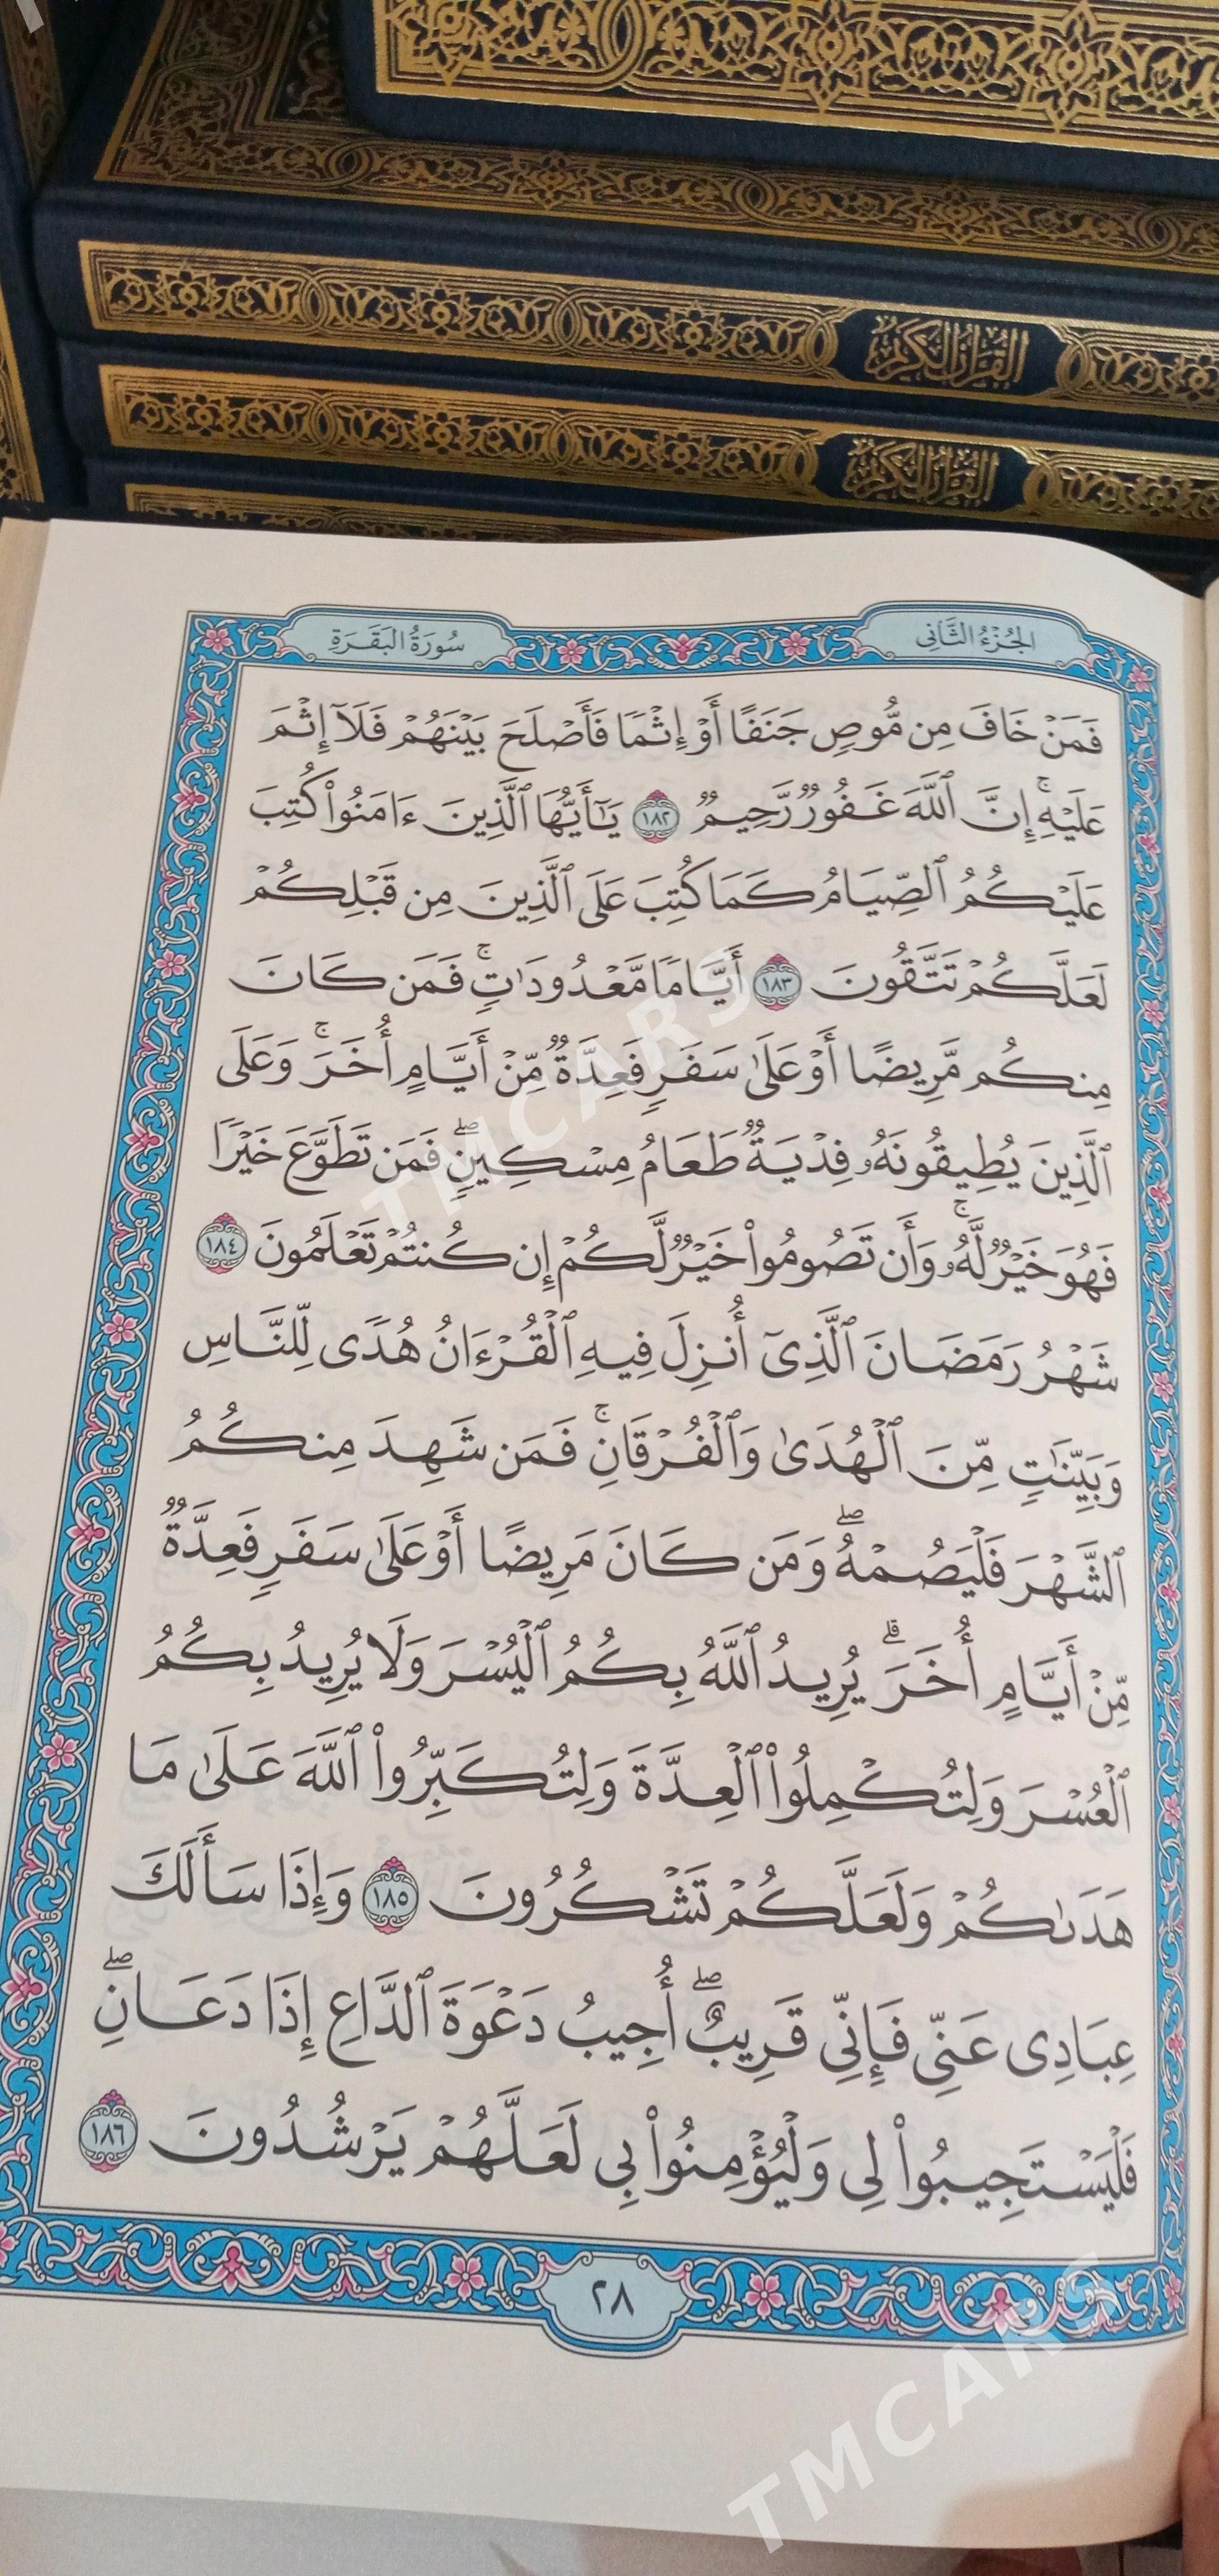 القرآن الكريم
القرآن الكريم
الجُزْءُ الثَّانِي
سُورَةُ البَقَرَةِ
فَمَنْ خَافَ مِن مُّوصٍ جَنَفًا أَوْ إِثْمًا فَأَصْلَحَ بَيْنَهُمْ فَلَآ إِثْمَ
عَلَيْهِۚ إِنَّ ٱللَّهَ غَفُورٌ رَّحِيمٌ ١٨٢ يَٰٓأَيُّهَا ٱلَّذِينَ ءَامَنُوا۟ كُتِبَ
عَلَيْكُمُ ٱلصِّيَامُ كَمَا كُتِبَ عَلَى ٱلَّذِينَ مِن قَبْلِكُمْ
لَعَلَّكُمْ تَتَّقُونَ ١٨٣ أَيَّامًا مَّعْدُودَٰتٍۚ فَمَن كَانَ
مِنكُم مَّرِيضًا أَوْ عَلَىٰ سَفَرٍ فَعِدَّةٌ مِّنْ أَيَّامٍ أُخَرَۚ وَعَلَى
ٱلَّذِينَ يُطِيقُونَهُۥ فِدْيَةٌ طَعَامُ مِسْكِينٍۖ فَمَن تَطَوَّعَ خَيْرًا
فَهُوَ خَيْرٌ لَّهُۥۚ وَأَن تَصُومُوا۟ خَيْرٌ لَّكُمْ إِن كُنتُمْ تَعْلَمُونَ ١٨٤
شَهْرُ رَمَضَانَ ٱلَّذِىٓ أُنزِلَ فِيهِ ٱلْقُرْءَانُ هُدًى لِّلنَّاسِ
وَبَيِّنَٰتٍ مِّنَ ٱلْهُدَىٰ وَٱلْفُرْقَانِۚ فَمَن شَهِدَ مِنكُمُ
ٱلشَّهْرَ فَلْيَصُمْهُۖ وَمَن كَانَ مَرِيضًا أَوْ عَلَىٰ سَفَرٍ فَعِدَّةٌ
مِّنْ أَيَّامٍ أُخَرَۗ يُرِيدُ ٱللَّهُ بِكُمُ ٱلْيُسْرَ وَلَا يُرِيدُ بِكُمُ
ٱلْعُسْرَ وَلِتُكْمِلُوا۟ ٱلْعِدَّةَ وَلِتُكَبِّرُوا۟ ٱللَّهَ عَلَىٰ مَا
هَدَىٰكُمْ وَلَعَلَّكُمْ تَشْكُرُونَ ١٨٥ وَإِذَا سَأَلَكَ
عِبَادِى عَنِّى فَإِنِّى قَرِيبٌۖ أُجِيبُ دَعْوَةَ ٱلدَّاعِ إِذَا دَعَانِۖ
فَلْيَسْتَجِيبُوا۟ لِى وَلْيُؤْمِنُوا۟ بِى لَعَلَّهُمْ يَرْشُدُونَ ١٨٦
٢٨
TMCARS
TMCARS